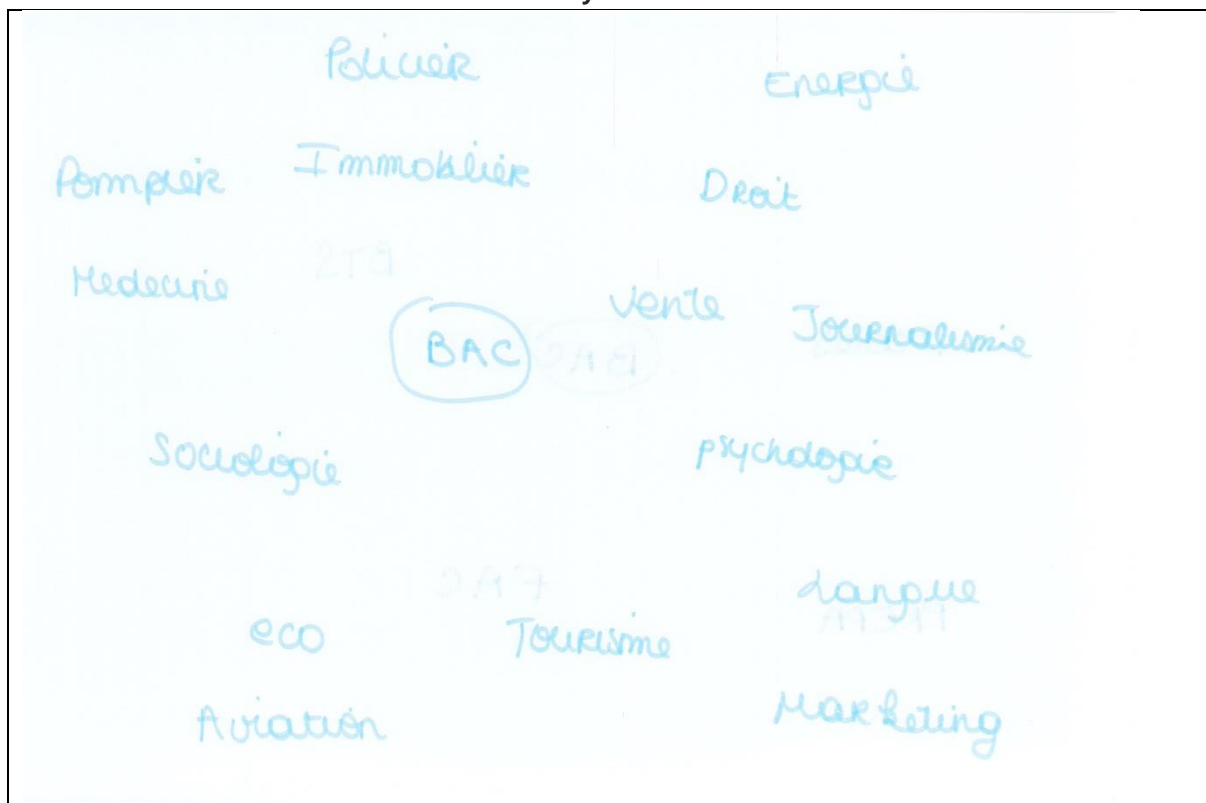 Policier
Energie
Pompier
Immobilier
Droit
Medecine
BTS
Vente
Journalisme
BAC
BAC
Sociologie
psychologie
FAC
Langue
eco
Tourisme
Aviation
Marketing